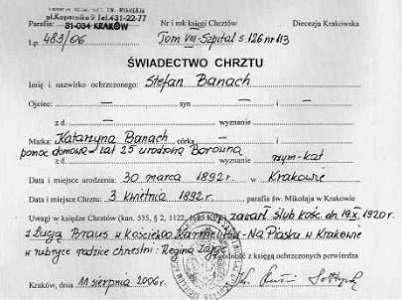 pl.Kopernika 9 Tel.431-22-77
Parafia: 31-034 KRAKÓW Nr i rok księgi Chrztów Diecezja Krakowska
L.p. 483/06 Tom VIII-Szpital s.126 nr 113
ŚWIADECTWO CHRZTU
Imię i nazwisko ochrzczonego: Stefan Banach
Ojciec: — syn — i —
z d. — wyznanie —
Matka: Katarzyna Banach córka — i
pomoc domowa lat 25 urodzona Borówna
z d. wyznanie rzym-kat
Data i miejsce urodzenia: 30 marca 1892 r. w Krakowie
Data i miejsce chrztu: 3 kwietnia 1892 r. parafia św. Mikołaja w Krakowie
Uwagi w księdze Chrztów (kan. 535, § 2, 1122, zawarł ślub kośc. dn 19.X.1920 r.
z Łucją Braus w Kościele Karmelitów-Na Piasku w Krakowie
w rubryce rodzice chrzestni: Regina
z księgą ochrzczonych potwierdza
Kraków, dnia 11 sierpnia 2006 r. Ks.